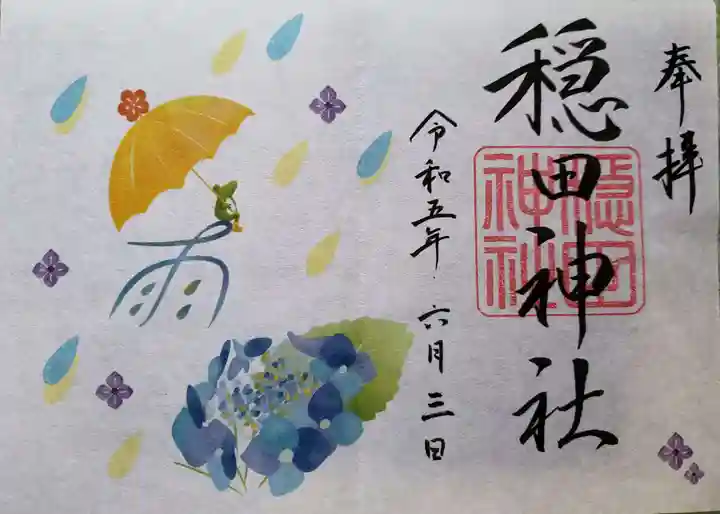 奉拝
穏田神社
穏田
神社
令和五年六月三日
雨